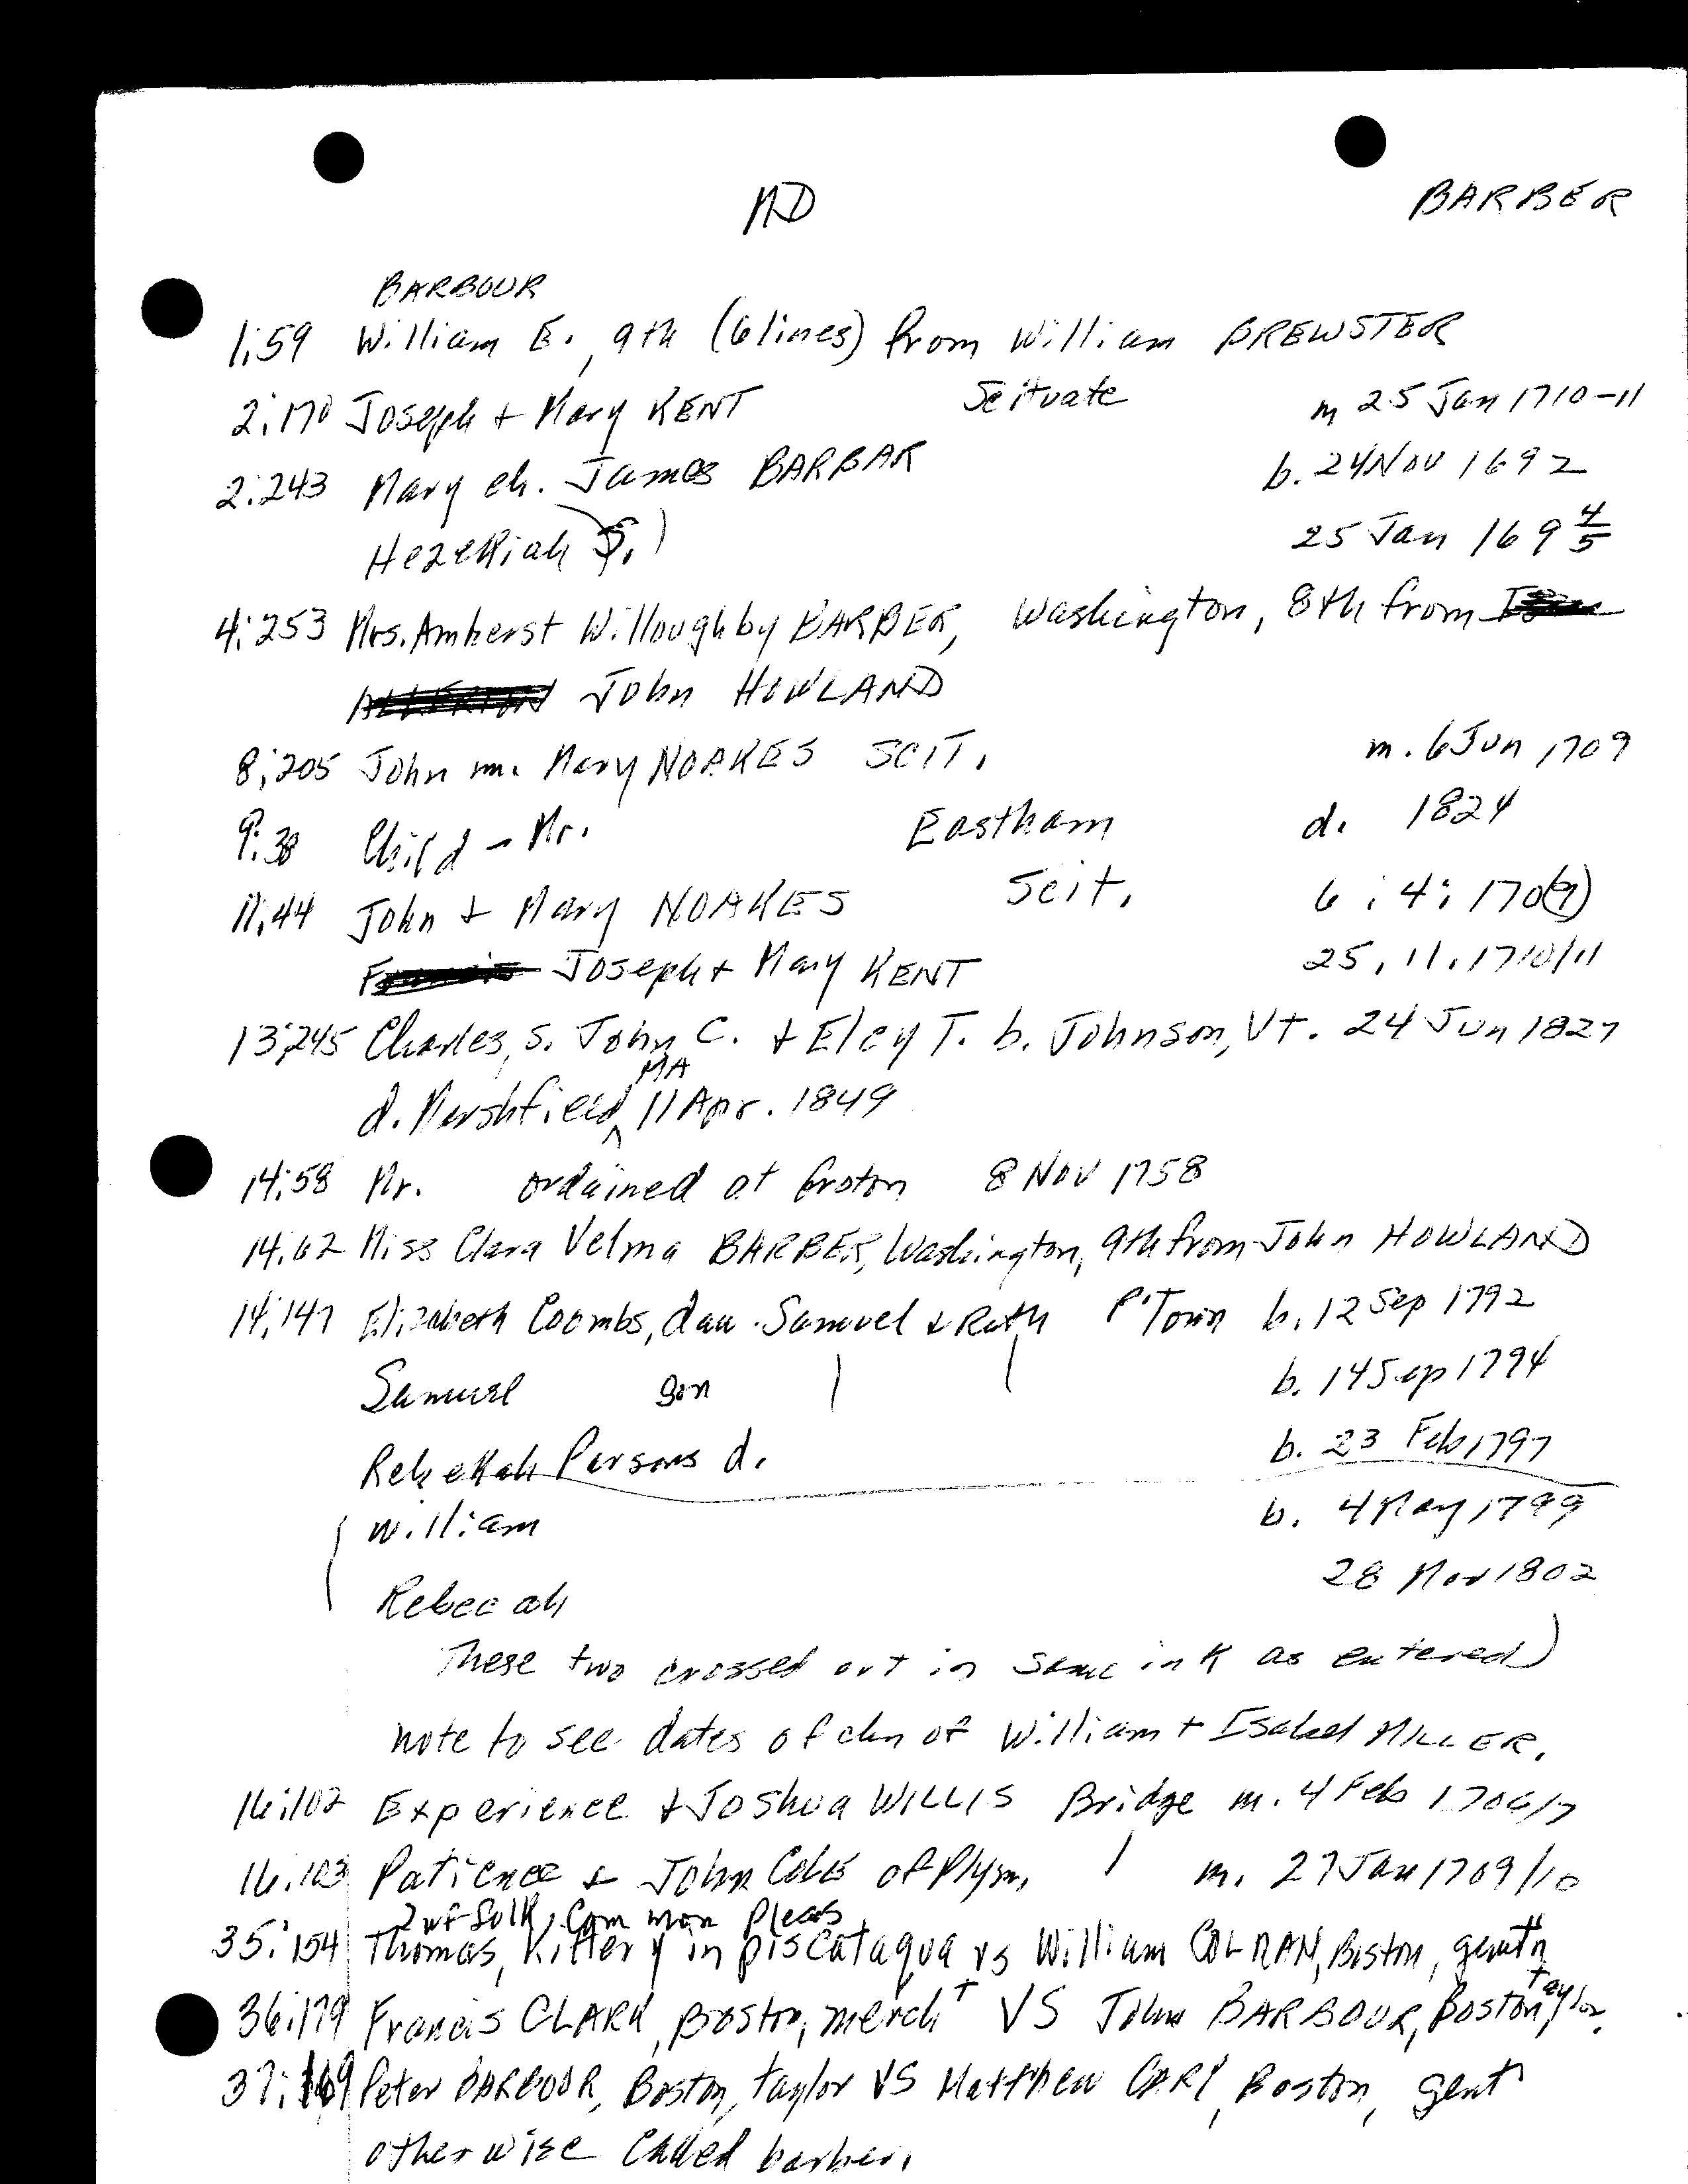 MD BARBER
BARBOUR
1:59 William E., 9th (6 lines) from William BREWSTER
2:170 Joseph + Mary KENT Scituate m 25 Jan 1710-11
2:243 Mary ch. James BARBAR b. 24 Nov 1692
Hezekiah S. 25 Jan 169 4/5
4:253 Mrs. Amherst Willoughby BARBER, Washington, 8th from
John HOWLAND
8:205 John m. Mary NOAKES SCIT. m. 6 Jun 1709
9:38 Child - Mr. Eastham d. 1824
11:44 John + Mary NOAKES Scit. 6:4:170(9)
Joseph + Mary KENT 25,11,1710/11
13:245 Charles, s. John C. + Elcy T. b. Johnson, Vt. 24 Jun 1827
d. Marshfield, MA 11 Apr. 1849
14:58 Mr. ordained at Groton 8 Nov 1758
14:62 Miss Clara Velma BARBER, Washington, 9th from John HOWLAND
14:147 Elizabeth Coombs, dau. Samuel & Ruth P'Town b. 12 Sep 1792
Samuel son b. 14 Sep 1794
Rebekah Parsons d. b. 23 Feb 1797
(William b. 4 May 1799
Rebecah 28 Mar 1802
These two crossed out in same ink as entered)
note to see dates of chn of William + Isabel MILLER.
16:102 Experience + Joshua WILLIS Bridge m. 4 Feb 1706/7
16:103 Patience & John COLE of Plym, m. 27 Jan 1709/10
Suffolk, Common Pleas
35:154 Thomas, Kittery in piscataqua vs William COLMAN, Boston, gentn
36:179 Francis CLARK, Boston, mercht VS John BARBOUR, Boston, taylor.
37:169 Peter BARBOUR, Boston, taylor VS Matthew CARY, Boston, gent
otherwise called barber.